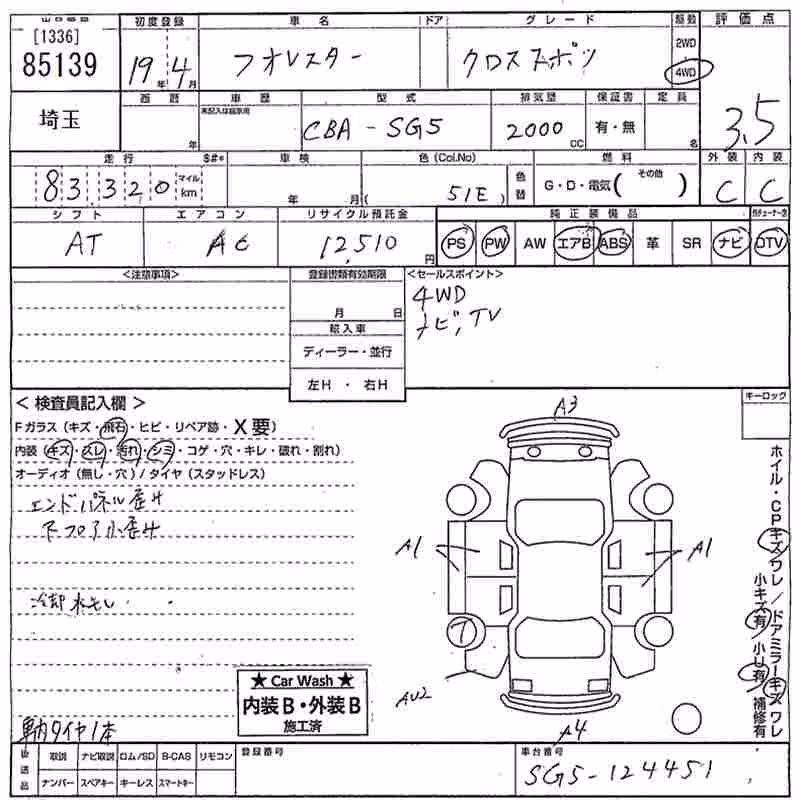 [1336]
85139
埼玉
初度登録 車名 ドア グレード 駆動 評価点
19年 4月 フオレスター クロススポーツ 2WD 4WD 3.5
西暦 車歴 型式 排気量 保証書 定員
年 未記入は自家用 CBA-SG5 2000cc 有・無 名
走行 $#* 車検 色(Col.No) 燃料 外装 内装
83,320 マイル km 年 月( 51E ) 色替 G・D・電気( その他 ) C C
シフト エアコン リサイクル預託金 純正装備品
AT AC 12,510円 PS PW AW エアB ABS 革 SR ナビ DTV
<注意事項> 登録書類有効期限 <セールスポイント>
月 日
4WD
ナビ,TV
輸入車
ディーラー・並行
左H・右H
<検査員記入欄> キーロック
Fガラス(キズ・飛石・ヒビ・リペア跡・X要)
内装(キズ・スレ・汚れ・シミ・コゲ・穴・キレ・破れ・割れ)
オーディオ(無し・穴)/タイヤ(スタッドレス)
エンドパネル歪ミ
下フロア小歪ミ
冷却水モレ
A3
A1 A1
T
AU2
A4
ホイル・CPキズワレ/ドアミラーキズワレ
小キズ有 小U有 補修有
★ Car Wash ★
内装B・外装B
施工済
車内タイヤ1本
後送品 取説 ナビ取説 ロム/SD B-CAS リモコン 登録番号 車台番号
ナンバー スペアキー キーレス スマートキー SG5-124451